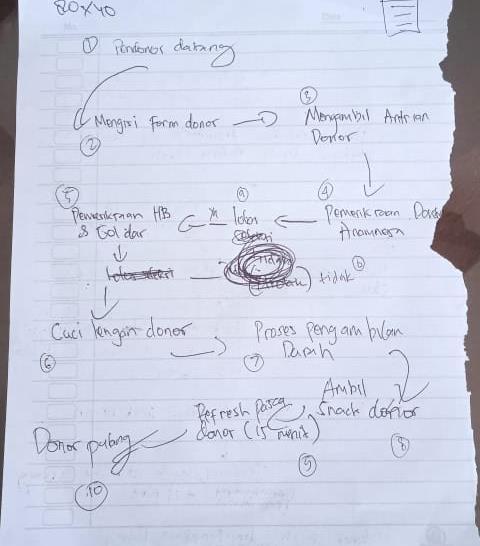 80x40
① Pendonor datang
② Mengisi Form donor
③ Mengambil Antrian
Donor
④ Pemeriksaan
Anamnesa
ⓐ lolos
ya
⑤ Pemeriksaan HB
& Goldar
ⓑ tidak
⑥ Cuci lengan donor
⑦ Proses pengambilan
Darah
⑧ Ambil
Snack donor
⑨ Refresh pasca
donor (15 menit)
⑩ Donor pulang